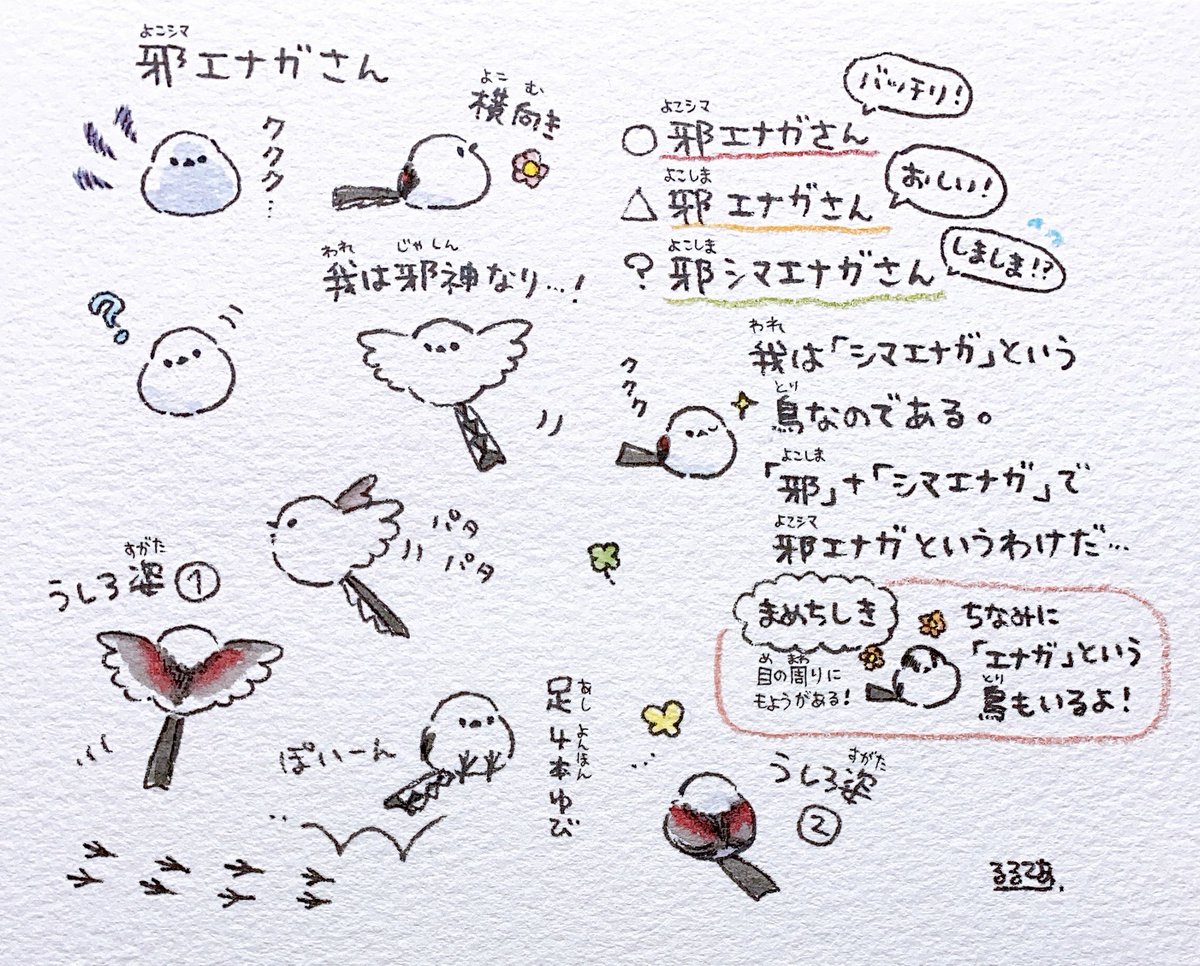 よこシマ
邪エナガさん
ククク…
よこむ
横向き
われ じゃしん
我は邪神なり…!
?
パタ
パタ
すがた
うしろ姿①
ぽいーん
あし よんほん
足4本ゆび
バッチリ!
よこシマ
○邪エナガさん
おしい!
よこしま
△邪エナガさん
しましま!?
よこしま
?邪シマエナガさん
ククク
われ
我は「シマエナガ」という
とり
鳥なのである。
よこしま
「邪」+「シマエナガ」で
よこシマ
邪エナガというわけだ…
まめちしき
め まわ
目の周りに
もようがある!
ちなみに
「エナガ」という
とり
鳥もいるよ!
すがた
うしろ姿
②
るるてあ.